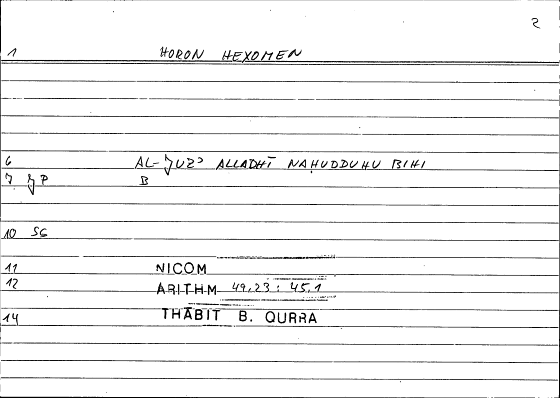 2
1 HORON HEXOMEN
6 AL-ǮUZʾ ALLADHĪ NAḤUDDUHU BIHI
7 Ǯ P B
10 SG
11 NICOM
12 ARITHM 49,23 : 45,1
14 THĀBIT B. QURRA